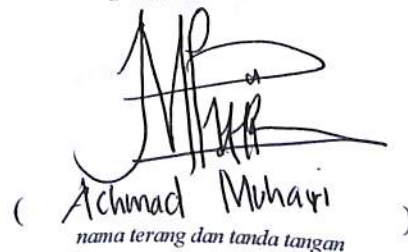 ( Achmad Muhayi )
nama terang dan tanda tangan